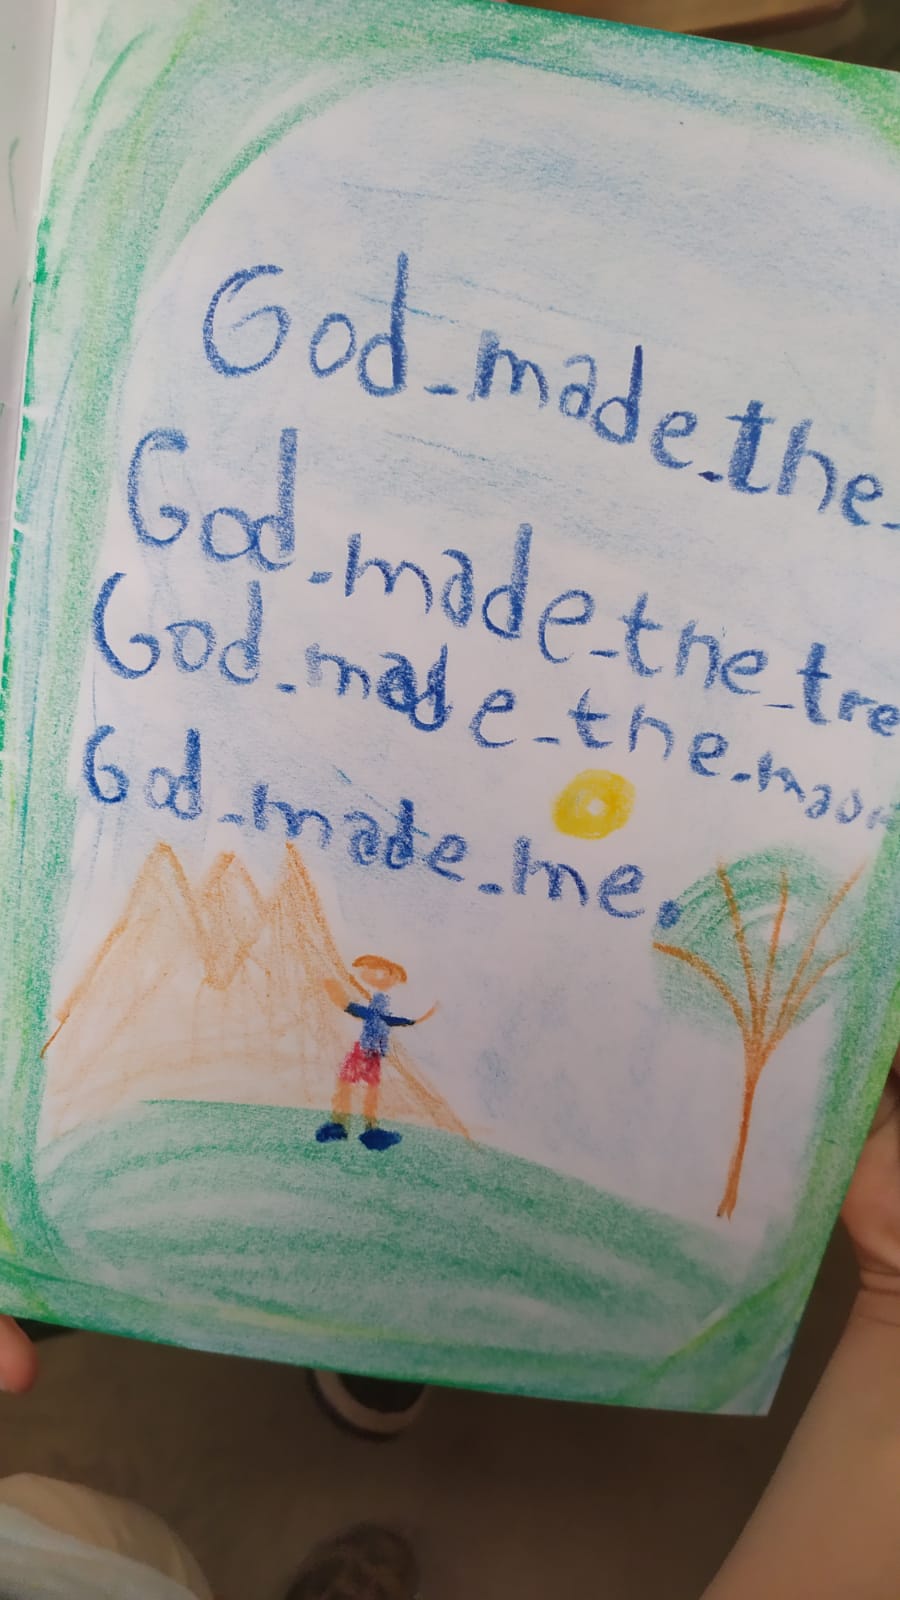 God_made_the_
God_made_the_tre
God_made_the_moon
God_made_me.